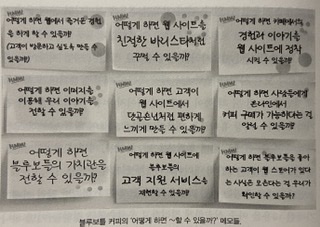 어떻게 하면 웹에서 즐거운 경험
을 하게 할 수 있을까?
(고객이
만들 수
있을까?)
어떻게 하면 웹 사이트를
친절한 바리스타처럼
꾸밀 수 있을까?
어떻게 하면 카페에서의
경험과 이야기를
웹 사이트에 정착
시킬 수 있을까?
어떻게 하면 이미지를
이용해 우리 이야기를
전할 수 있을까?
어떻게 하면 고객이
웹 사이트에서
단골손님처럼 편하게
느끼게 만들 수 있을까?
어떻게 하면 사람들에게
온라인에서
커피 구매가 가능하다는 걸
알릴 수 있을까?
어떻게 하면
블루보틀의 가치관을
전할 수 있을까?
어떻게 하면 웹 사이트에
블루보틀의
고객 지원 서비스를
재현할 수 있을까?
어떻게 하면 블루보틀을 좋아
하는 고객이 웹 스토어가 있다
는 사실은 모른다는 걸 우리가
확인할 수 있을까?
블루보틀 커피의 '어떻게 하면 ~할 수 있을까?' 메모들.